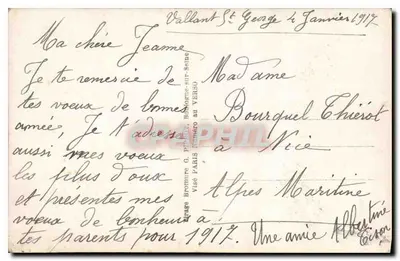 Vallant St George 4 Janvier 1917
Ma chère Jeanne
Je te remercie de
tes voeux de bonne
année, Je t'adresse
aussi mes voeux
les plus doux
et présentes mes
voeux de bonheur à
tes parents pour 1917.
Madame
Bourquel Thiérot
à Nice
Alpes Maritime
Une amie Albertine